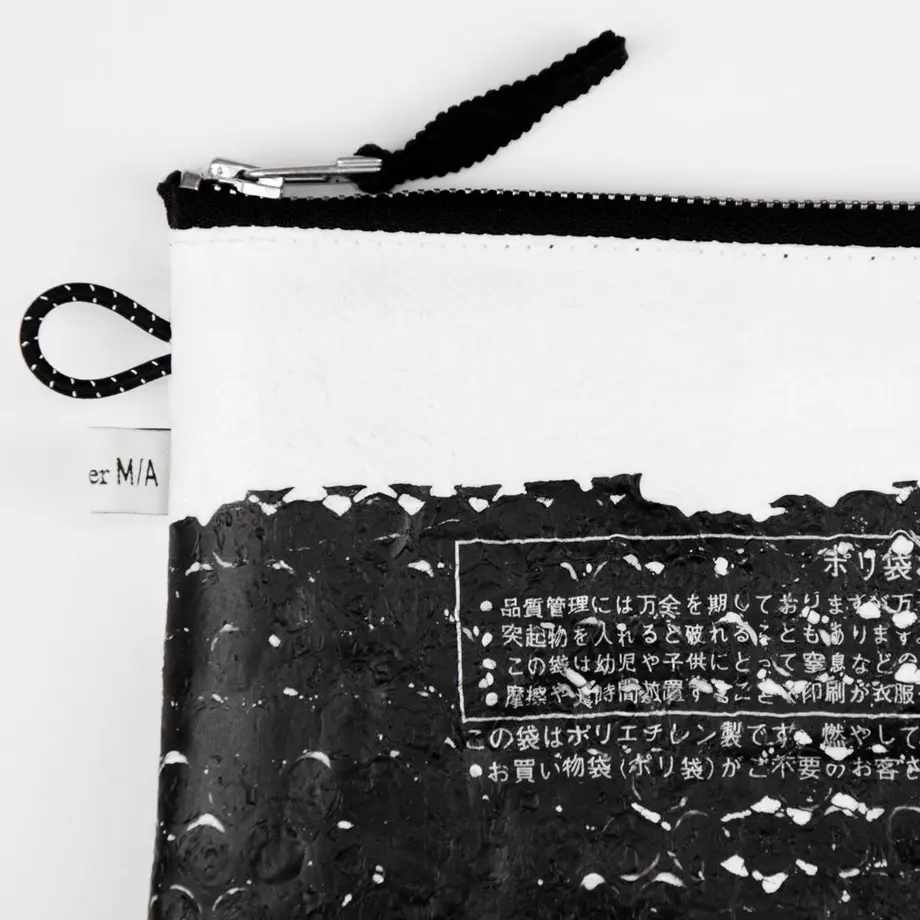 er M/A
ポリ袋
●品質管理には万全を期しておりますが万
●突起物を入れると破れることもあります
●この袋は幼児や子供にとって窒息などの
●摩擦や長時間放置することで印刷が衣服
この袋はポリエチレン製です。燃やして
●お買い物袋(ポリ袋)がご不要のお客さ